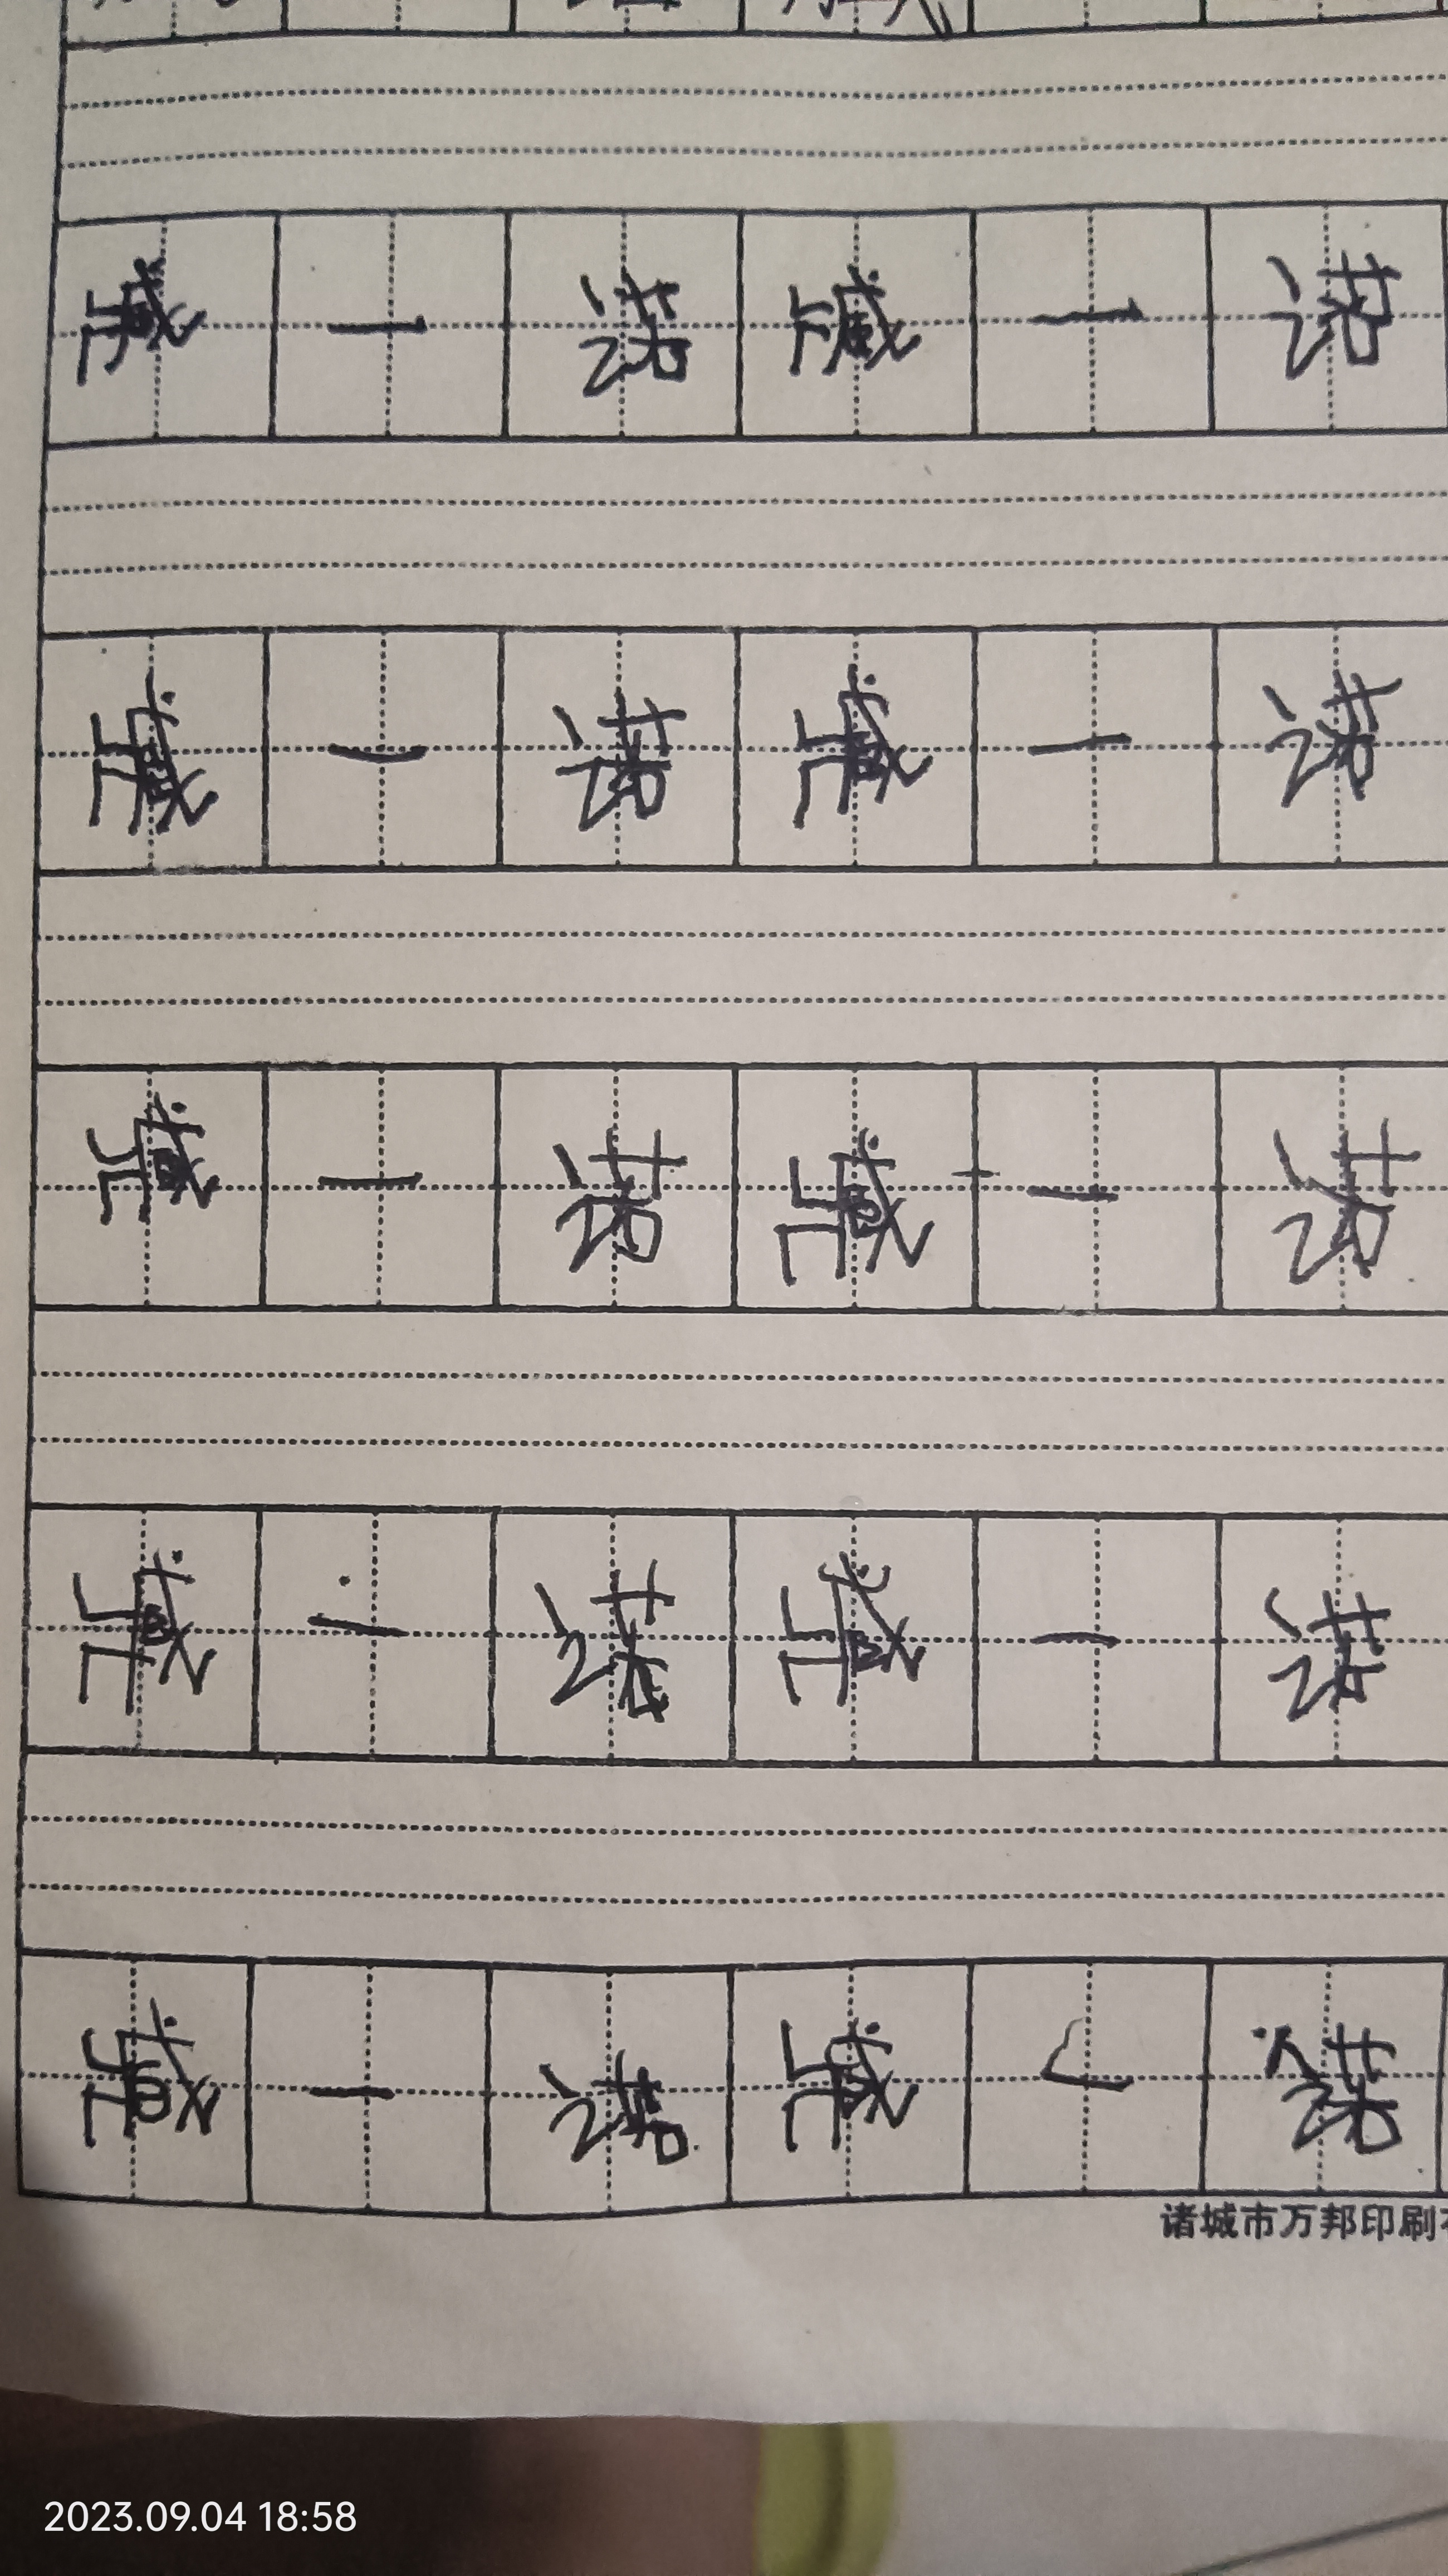 臧一诺臧一诺
臧一诺臧一诺
臧一诺臧一诺
臧一诺臧一诺
臧一诺臧一诺
诸城市万邦印刷
2023.09.04 18:58